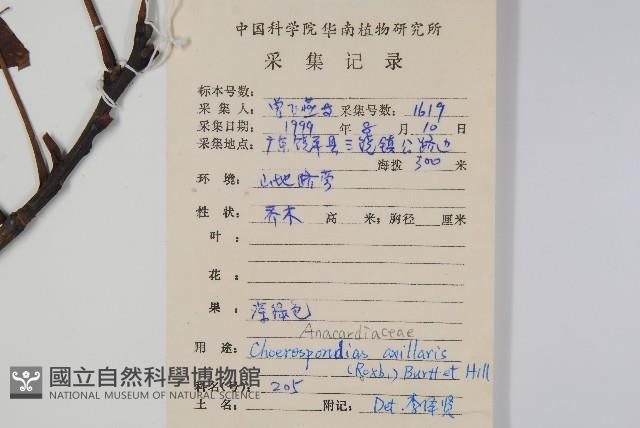 中国科学院华南植物研究所
采集记录
标本号数:
采集人: 曾飞燕 采集号数: 1619
采集日期: 1999 年 8 月 10 日
采集地点: 广东饶平县三饶镇公路边
海拨 300 米
环境: 山地路旁
性状: 乔木 高 米; 胸径 厘米
叶:
花:
果: 深绿色
Anacardiaceae
用途: Choerospondias axillaris
(Roxb.) Burtt et Hill
科名(号): 205
土名: 附记: Det. 李泽贤
國立自然科學博物館
NATIONAL MUSEUM OF NATURAL SCIENCE